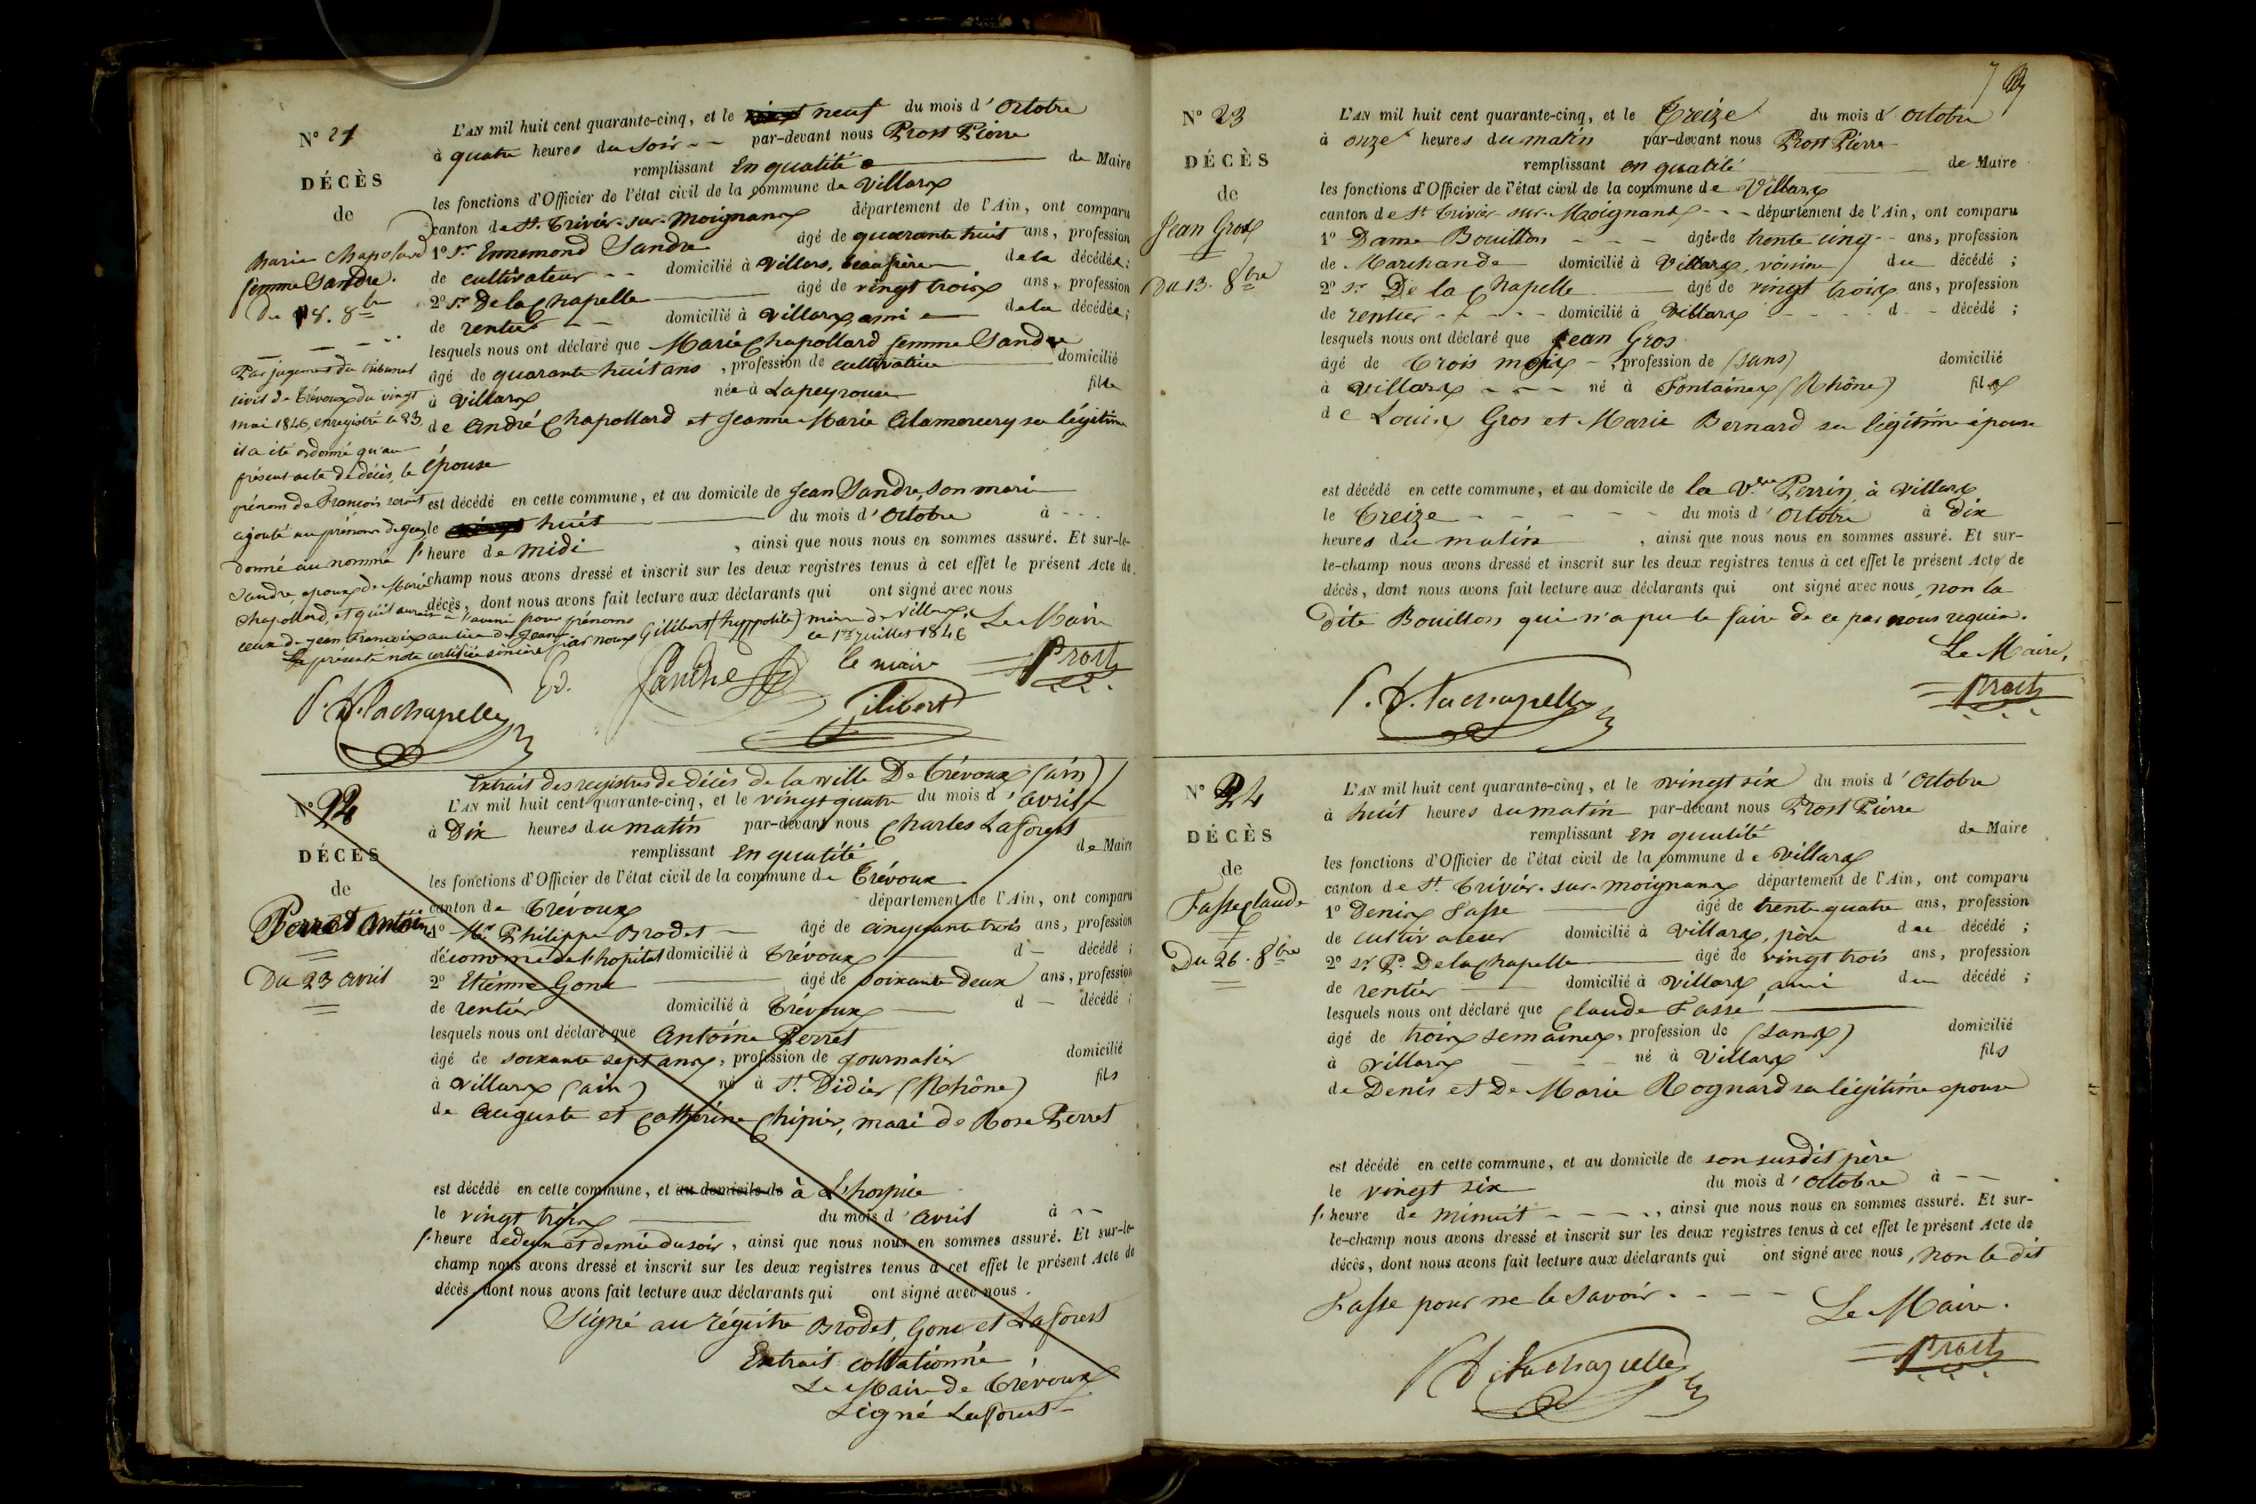 N° 21
DÉCÈS
de
Marie Chapolard
femme Sandre.
Du 8. 8bre
Par jugement du tribunal
civil de Trévoux du vingt
mai 1846, enregistré le 23,
il a été ordonné qu'au
présent acte de décès, le
prénom de François serait
ajouté au prénom de Jean
donné au nommé
Sandre, époux de Marie
Chapollard, et qu'il aurait à l'avenir pour prénoms
ceux de Jean François au lieu de Jean
La présente note certifiée sincère par nous Gilibert (hyppolite) maire de Villars, ce 1er juillet 1846
L'AN mil huit cent quarante-cinq, et le neuf du mois d'octobre
à quatre heures du soir -- par-devant nous Prost Pierre
remplissant en qualité de Maire
les fonctions d'Officier de l'état civil de la commune de Villars
canton de St. Trivier-sur-Moignans département de l'Ain, ont comparu
1° Sr. Ennemond Sandre âgé de quarante huit ans, profession
de cultivateur -- domicilié à Villars, beaufrère de la décédée;
2° Sr. De la Chapelle âgé de vingt trois ans, profession
de rentier -- domicilié à Villars, ami de la décédée;
lesquels nous ont déclaré que Marie Chapollard femme Sandre
âgé de quarante huit ans, profession de cultivatrice domicilié
à Villars née à Lapeyrouse fille
de André Chapollard et Jeanne Marie Alamercery sa légitime
épouse
est décédé en cette commune, et au domicile de Jean Sandre, son mari
le huit du mois d'octobre à ---
heure de midi, ainsi que nous nous en sommes assuré. Et sur-le-
champ nous avons dressé et inscrit sur les deux registres tenus à cet effet le présent Acte de
décès, dont nous avons fait lecture aux déclarants qui ont signé avec nous
Le Maire
Ed. Sandre
le maire
Prost
P. D. Lachapelle
Gilibert
Extrait des registres de décès de la ville De Trévoux (ain)
N° 22
DÉCÈS
de
Perret Antoine
Du 23 avril
L'AN mil huit cent quarante-cinq, et le vingt quatre du mois d'avril
à Dix heures du matin par-devant nous Charles Laforest
remplissant en qualité de Maire
les fonctions d'Officier de l'état civil de la commune de Trévoux
canton de Trévoux département de l'Ain, ont comparu
1° Mr. Philippe Brodet âgé de cinquante trois ans, profession
d'économe de l'hopital domicilié à Trévoux d - décédé;
2° Etienne Gone âgé de soixante deux ans, profession
de rentier domicilié à Trévoux d - décédé;
lesquels nous ont déclaré que Antoine Perret
âgé de soixante sept ans, profession de journalier domicilié
à Villars (ain) né à St. Didier (Rhône) fils
de Auguste et Catherine Chipier, mari de Rose Perret
est décédé en cette commune, et au domicile de à L'hospice
le vingt trois du mois d'avril à --
heure de deux et demie du soir, ainsi que nous nous en sommes assuré. Et sur-le-
champ nous avons dressé et inscrit sur les deux registres tenus à cet effet le présent Acte de
décès, dont nous avons fait lecture aux déclarants qui ont signé avec nous.
Signé au régistre Brodet, Gone et Laforest
Extrait collationné
Le Maire de Trévoux
Signé Laforest
N° 23
DÉCÈS
de
Jean Gros
Du 13. 8bre
L'AN mil huit cent quarante-cinq, et le Treize du mois d'octobre
à onze heures du matin par-devant nous Prost Pierre
remplissant en qualité de Maire
les fonctions d'Officier de l'état civil de la commune de Villars
canton de St Trivier-sur-Moignans --- département de l'Ain, ont comparu
1° Dame Bouillon --- âgée de trente cinq -- ans, profession
de Marchande domicilié à Villars, voisine du décédé;
2° Sr De la Chapelle âgé de vingt trois ans, profession
de rentier ----- domicilié à Villars ---- d -- décédé;
lesquels nous ont déclaré que Jean Gros
âgé de Trois mois -, profession de (sans) domicilié
à Villars --- né à Fontaines (Rhône) fils
de Louis Gros et Marie Bernard sa légitime épouse
est décédé en cette commune, et au domicile de la Vve Perrin à Villars
le Treize ----- du mois d'octobre à dix
heures du matin, ainsi que nous nous en sommes assuré. Et sur-
le-champ nous avons dressé et inscrit sur les deux registres tenus à cet effet le présent Acte de
décès, dont nous avons fait lecture aux déclarants qui ont signé avec nous, non la
dite Bouillon qui n'a pu le faire de ce par nous requise.
Le Maire,
P. D. Lachapelle
Prost
N° 24
DÉCÈS
de
Fasse Claude
Du 26. 8bre
L'AN mil huit cent quarante-cinq, et le vingt six du mois d'octobre
à huit heures du matin par-devant nous Prost Pierre
remplissant en qualité de Maire
les fonctions d'Officier de l'état civil de la commune de Villars
canton de St. Trivier-sur-Moignans département de l'Ain, ont comparu
1° Denis Fasse âgé de trente quatre ans, profession
de cultivateur domicilié à Villars, père du décédé;
2° Sr P. De la Chapelle âgé de vingt trois ans, profession
de rentier domicilié à Villars, ami du décédé;
lesquels nous ont déclaré que Claude Fasse
âgé de trois semaines, profession de (sans) domicilié
à Villars --- né à Villars fils
de Denis et De Marie Rognard sa légitime épouse
est décédé en cette commune, et au domicile de son susdit père
le vingt six du mois d'octobre à --
heure de minuit ----, ainsi que nous nous en sommes assuré. Et sur-
le-champ nous avons dressé et inscrit sur les deux registres tenus à cet effet le présent Acte de
décès, dont nous avons fait lecture aux déclarants qui ont signé avec nous, non le dit
Fasse pour ne le savoir. ----
Le Maire.
P. D. Lachapelle
Prost